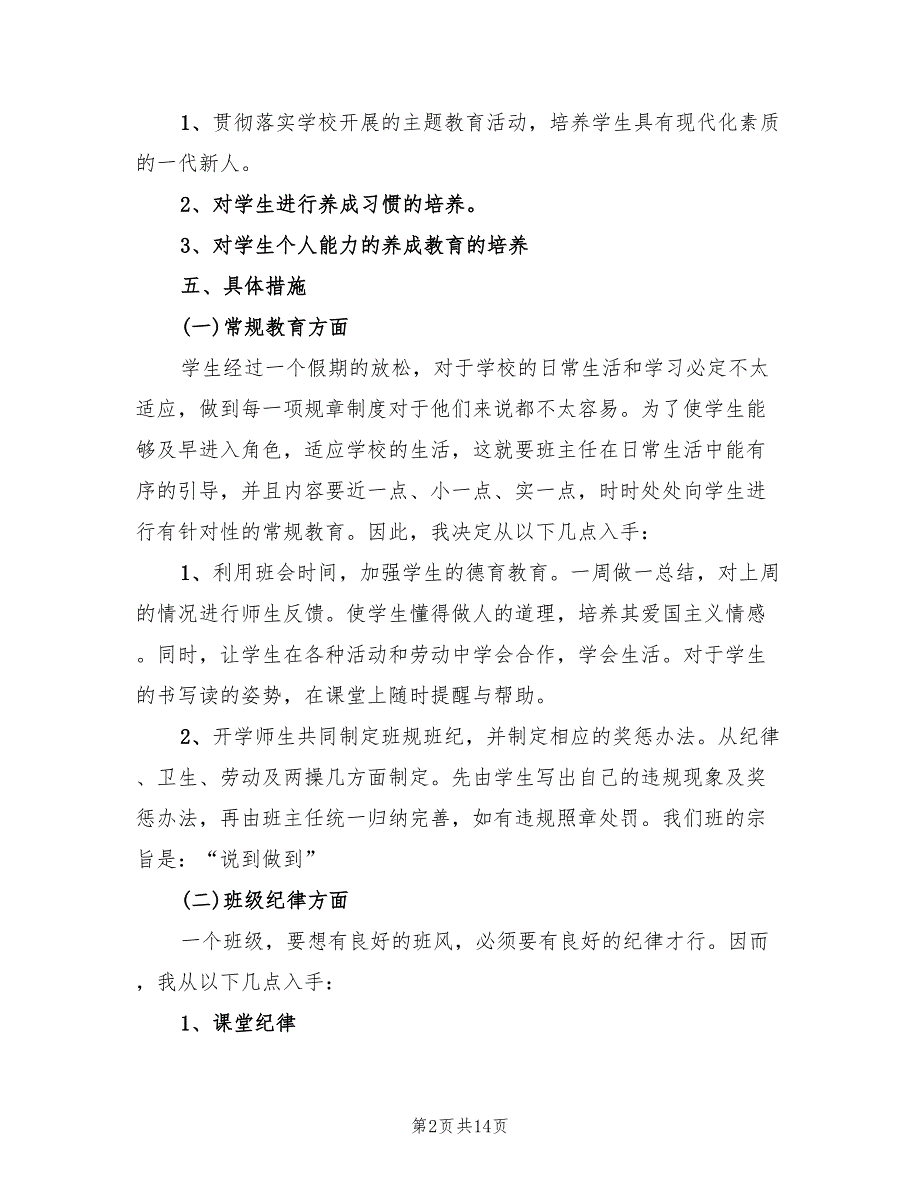 1、贯彻落实学校开展的主题教育活动，培养学生具有现代化素质
的一代新人。
2、对学生进行养成习惯的培养。
3、对学生个人能力的养成教育的培养
五、具体措施
(一)常规教育方面
学生经过一个假期的放松，对于学校的日常生活和学习必定不太
适应，做到每一项规章制度对于他们来说都不太容易。为了使学生能
够及早进入角色，适应学校的生活，这就要班主任在日常生活中能有
序的引导，并且内容要近一点、小一点、实一点，时时处处向学生进
行有针对性的常规教育。因此，我决定从以下几点入手：
1、利用班会时间，加强学生的德育教育。一周做一总结，对上周
的情况进行师生反馈。使学生懂得做人的道理，培养其爱国主义情感
。同时，让学生在各种活动和劳动中学会合作，学会生活。对于学生
的书写读的姿势，在课堂上随时提醒与帮助。
2、开学师生共同制定班规班纪，并制定相应的奖惩办法。从纪律
、卫生、劳动及两操几方面制定。先由学生写出自己的违规现象及奖
惩办法，再由班主任统一归纳完善，如有违规照章处罚。我们班的宗
旨是：“说到做到”
(二)班级纪律方面
一个班级，要想有良好的班风，必须要有良好的纪律才行。因而
，我从以下几点入手：
1、课堂纪律
第2页共14页